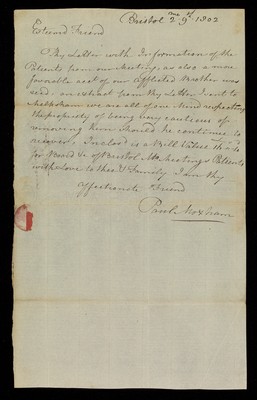 Bristol 2 mo 9th 1802
Esteemed Friend
Thy Letter with Information of the
Patients from our Meeting, as also a more
favorable acct of our afflicted Brother was
read. an extract from thy Letter I sent to
Melksham we are all of one Mind respecting
the propriety of being very cautious of
removing him should he continue to
recover, Inclosed is a Bill Value
for Board &c of Bristol Mo Meetings Patients
with Love to thee & Family I am thy
affectionate Friend
Paul Moxham